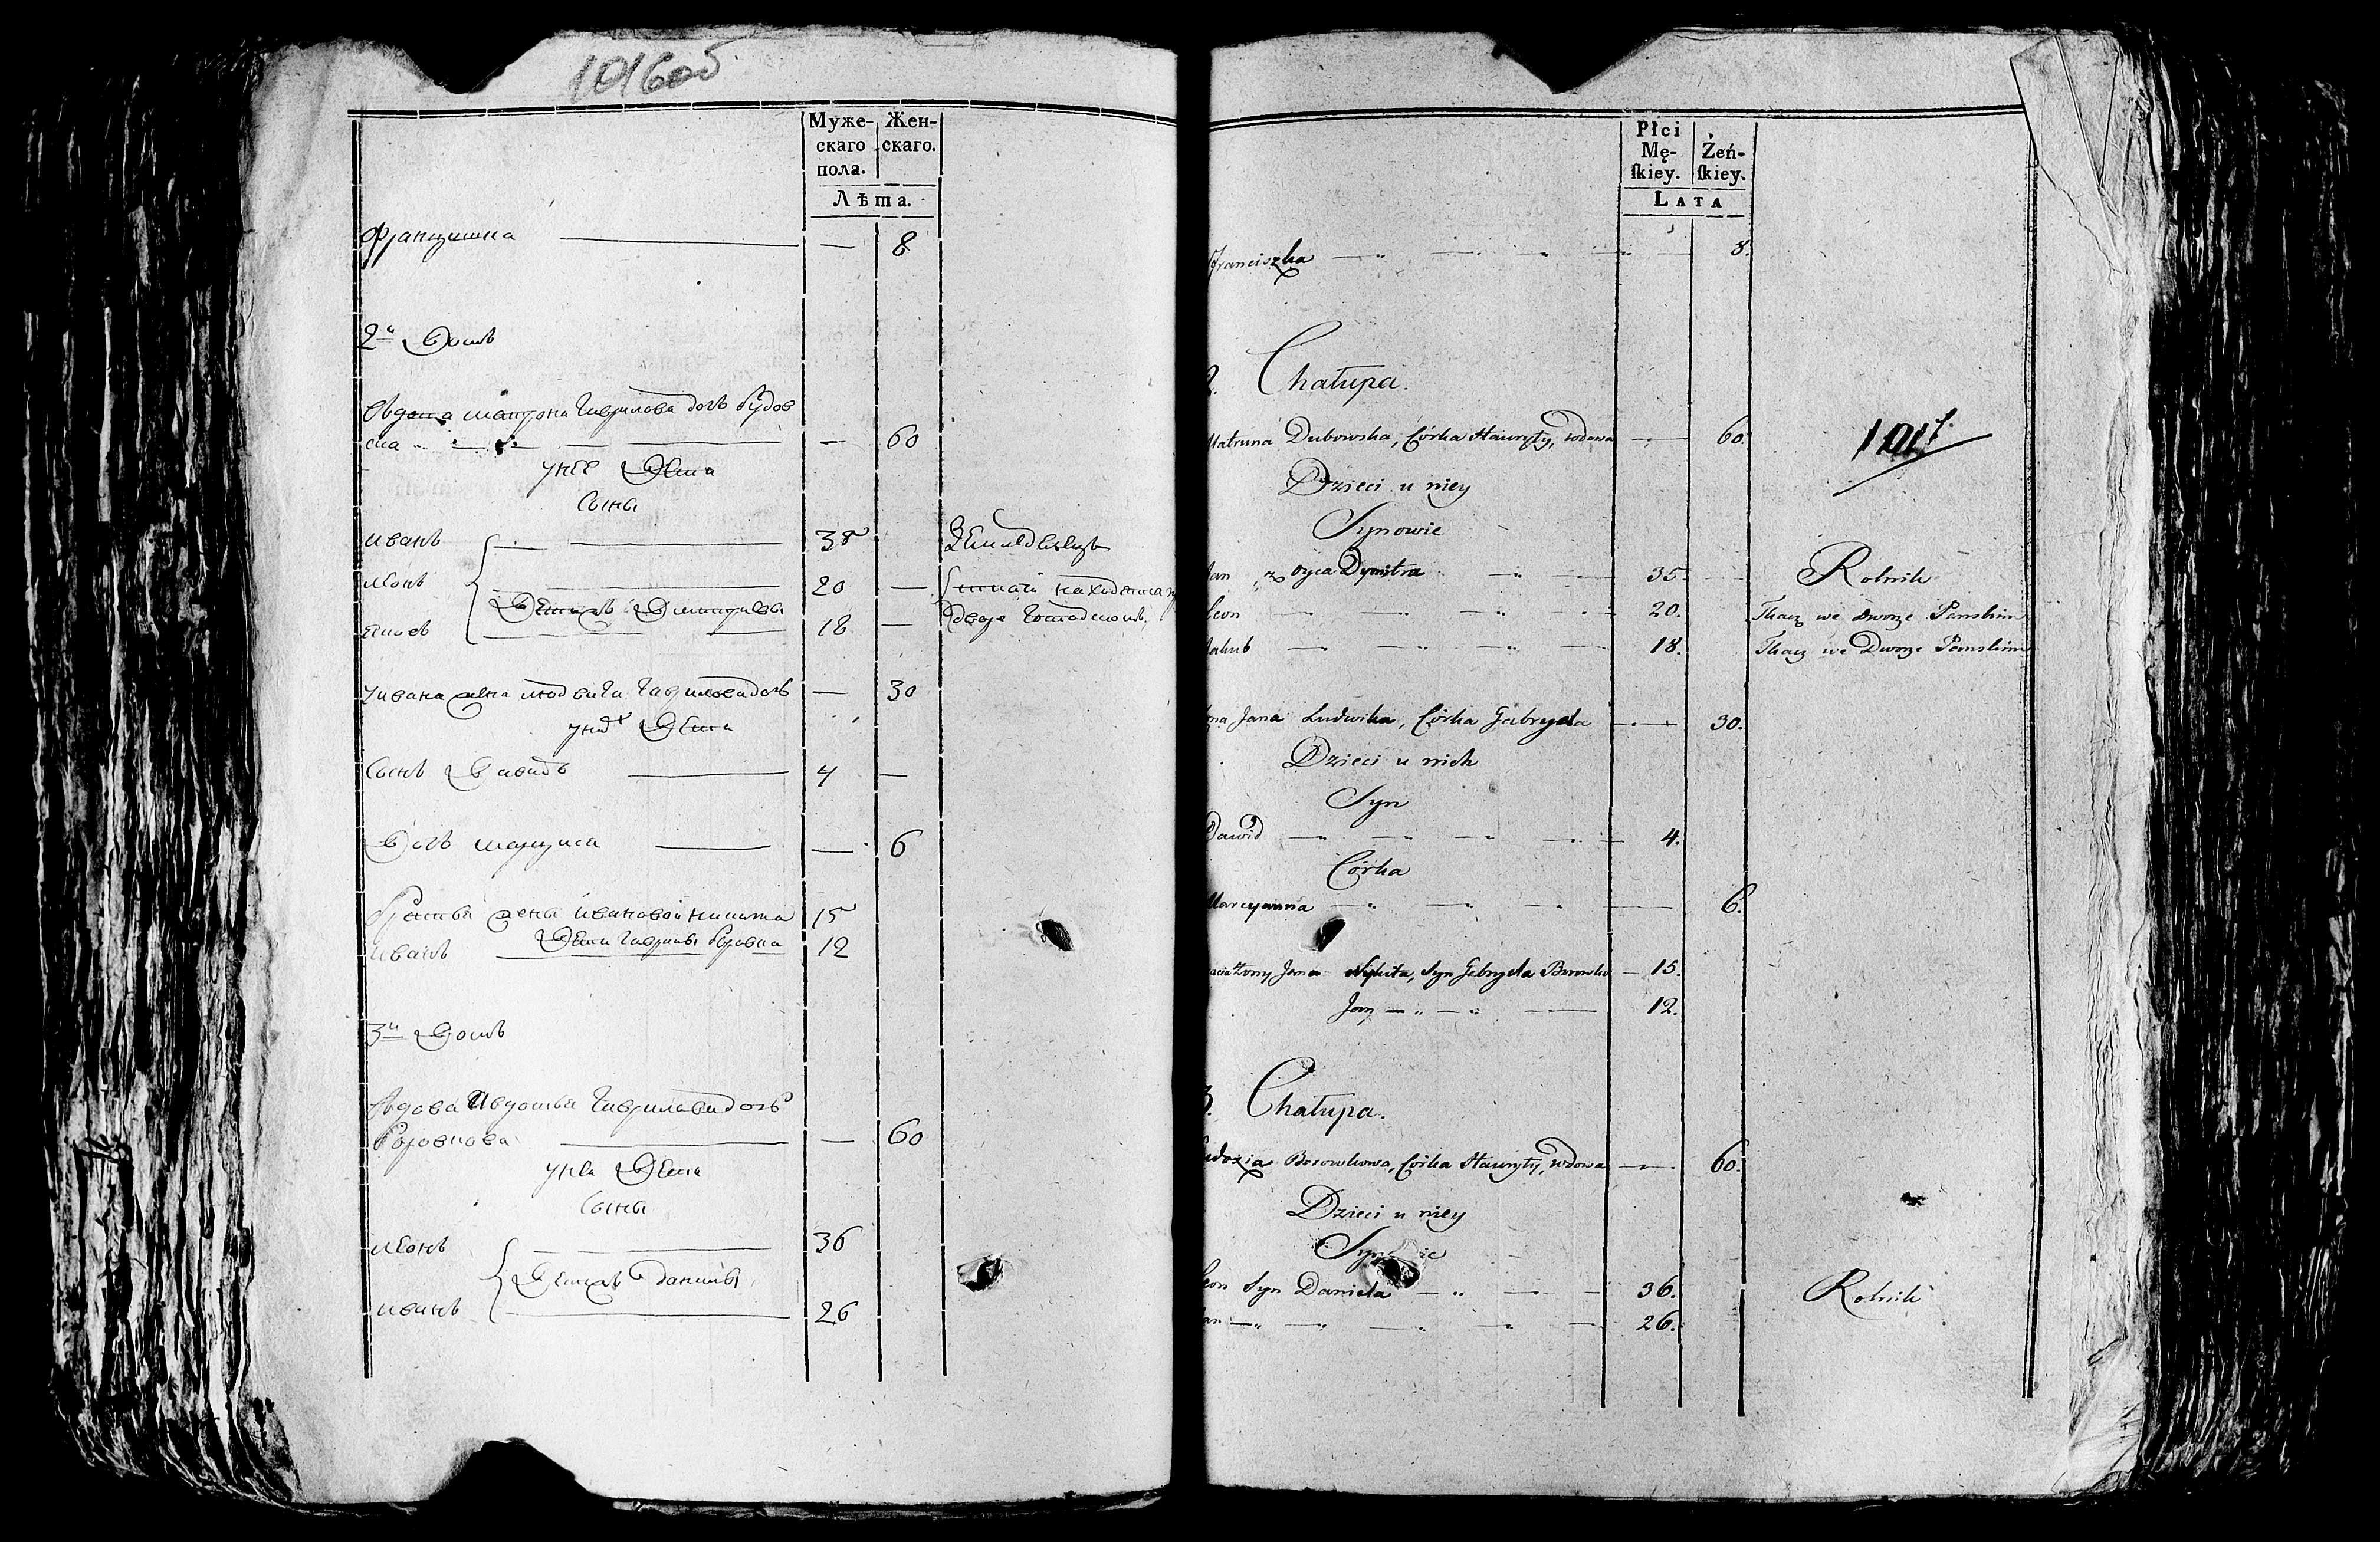 1016об
Муже- Жен-
скаго скаго.
пола.
Лѣта.
Францишка — 8
2й Домъ
Вдова Матрона Гаврилова дочь Дубов
ска — 60
у нее Дѣти
Сыны
Иванъ 35 Земледѣлецъ
Леонъ 20 — Ткачи находятца въ
Дѣти Дмитріевы
Яковъ 18 — дворе Господскомъ
У Ивана жена Людвига Гаврилова дочь — 30
у них Дѣти
Сынъ Давидъ 4 —
Дочь Марциса — 6
Братья жены Ивановой Никита 15
Иванъ Дѣти Гаврилы 12
3й Домъ
Вдова Авдотья Гаврилова дочь
Боровкова — 60
у нее Дѣти
Сыны
Леонъ 36
Дѣти Данилы
Иванъ 26
Płci
Mę- Żeń-
ſkiey. ſkiey.
LATA
Franciszka 8.
2. Chałupa.
Matruna Dubowska, Córka Hawryły, wdowa 60.
1017
Dzieci u niey
Synowie
Jan z oyca Dymitra 35. Rolnik
Leon 20. Tkacz we Dworze Panskim
Jakub 18. Tkacz we Dworze Panskim
Żona Jana Ludwika, Córka Gabryela 30.
Dzieci u nich
Syn
Dawid 4.
Córka
Marcyanna 6.
Żony Jana Nykita, Syn Gabryela 15.
Jan 12.
3. Chałupa.
Eudoxia Borowkowa, Córka Hawryły, wdowa 60.
Dzieci u niey
Synowie
Leon Syn Daniela 36. Rolnik
Jan 26.